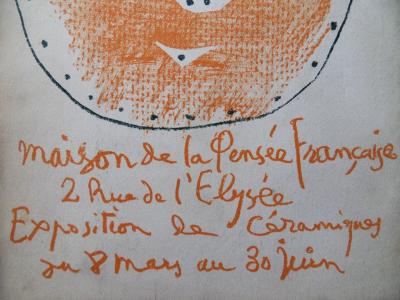 maison de la Pensée Française
2 Rue de l'Elysée
Exposition de céramiques
du 8 mars au 30 juin